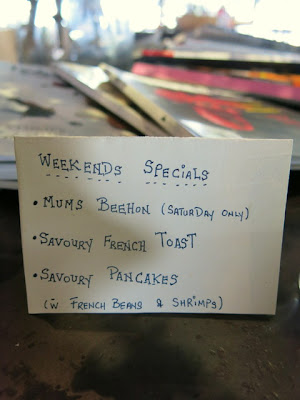 WEEKENDS SPECIALS
• MUMS BEEHON (SATURDAY ONLY)
• SAVOURY FRENCH TOAST
• SAVOURY PANCAKES
(w̄ FRENCH BEANS & SHRIMPS)